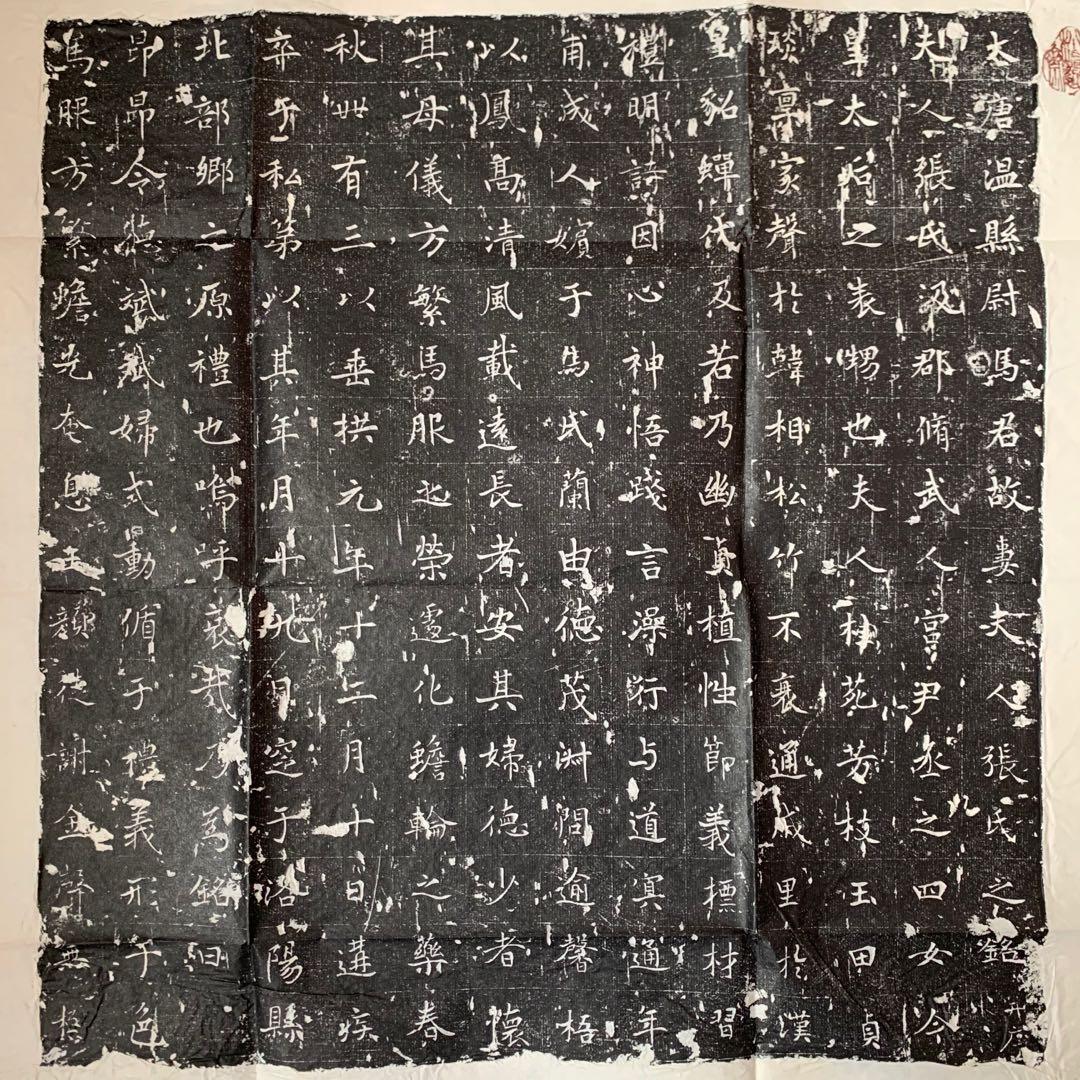 大唐温縣尉馬君故妻夫人張氏之銘并序
夫人張氏汲郡脩武人富尹丞之四女今
皇太后之表甥也夫人桂菀芳枝玉田貞
琰稟家聲於韓相松竹不衰通戚里於漢
皇貂蟬代及若乃幽貞植性節義摽材習
禮明詩因心神悟踐言澡行与道冥通年
甫成人嬪于馬氏蘭由德茂淋問逾馨梧
以鳳高清風載遠長者安其婦德少者懷
其母儀方繁馬服之榮遽化蟾輪之藥春
秋卅有三以垂拱元年十二月十日遘疾
弃于私第以其年月廿九日窆于洛陽縣
北部鄉之原禮也嗚呼哀哉乃爲銘曰
昂昂令德斌斌婦式動循于禮義形于色
馬服方繁蟾光奄息玉顏徒謝金聲無極